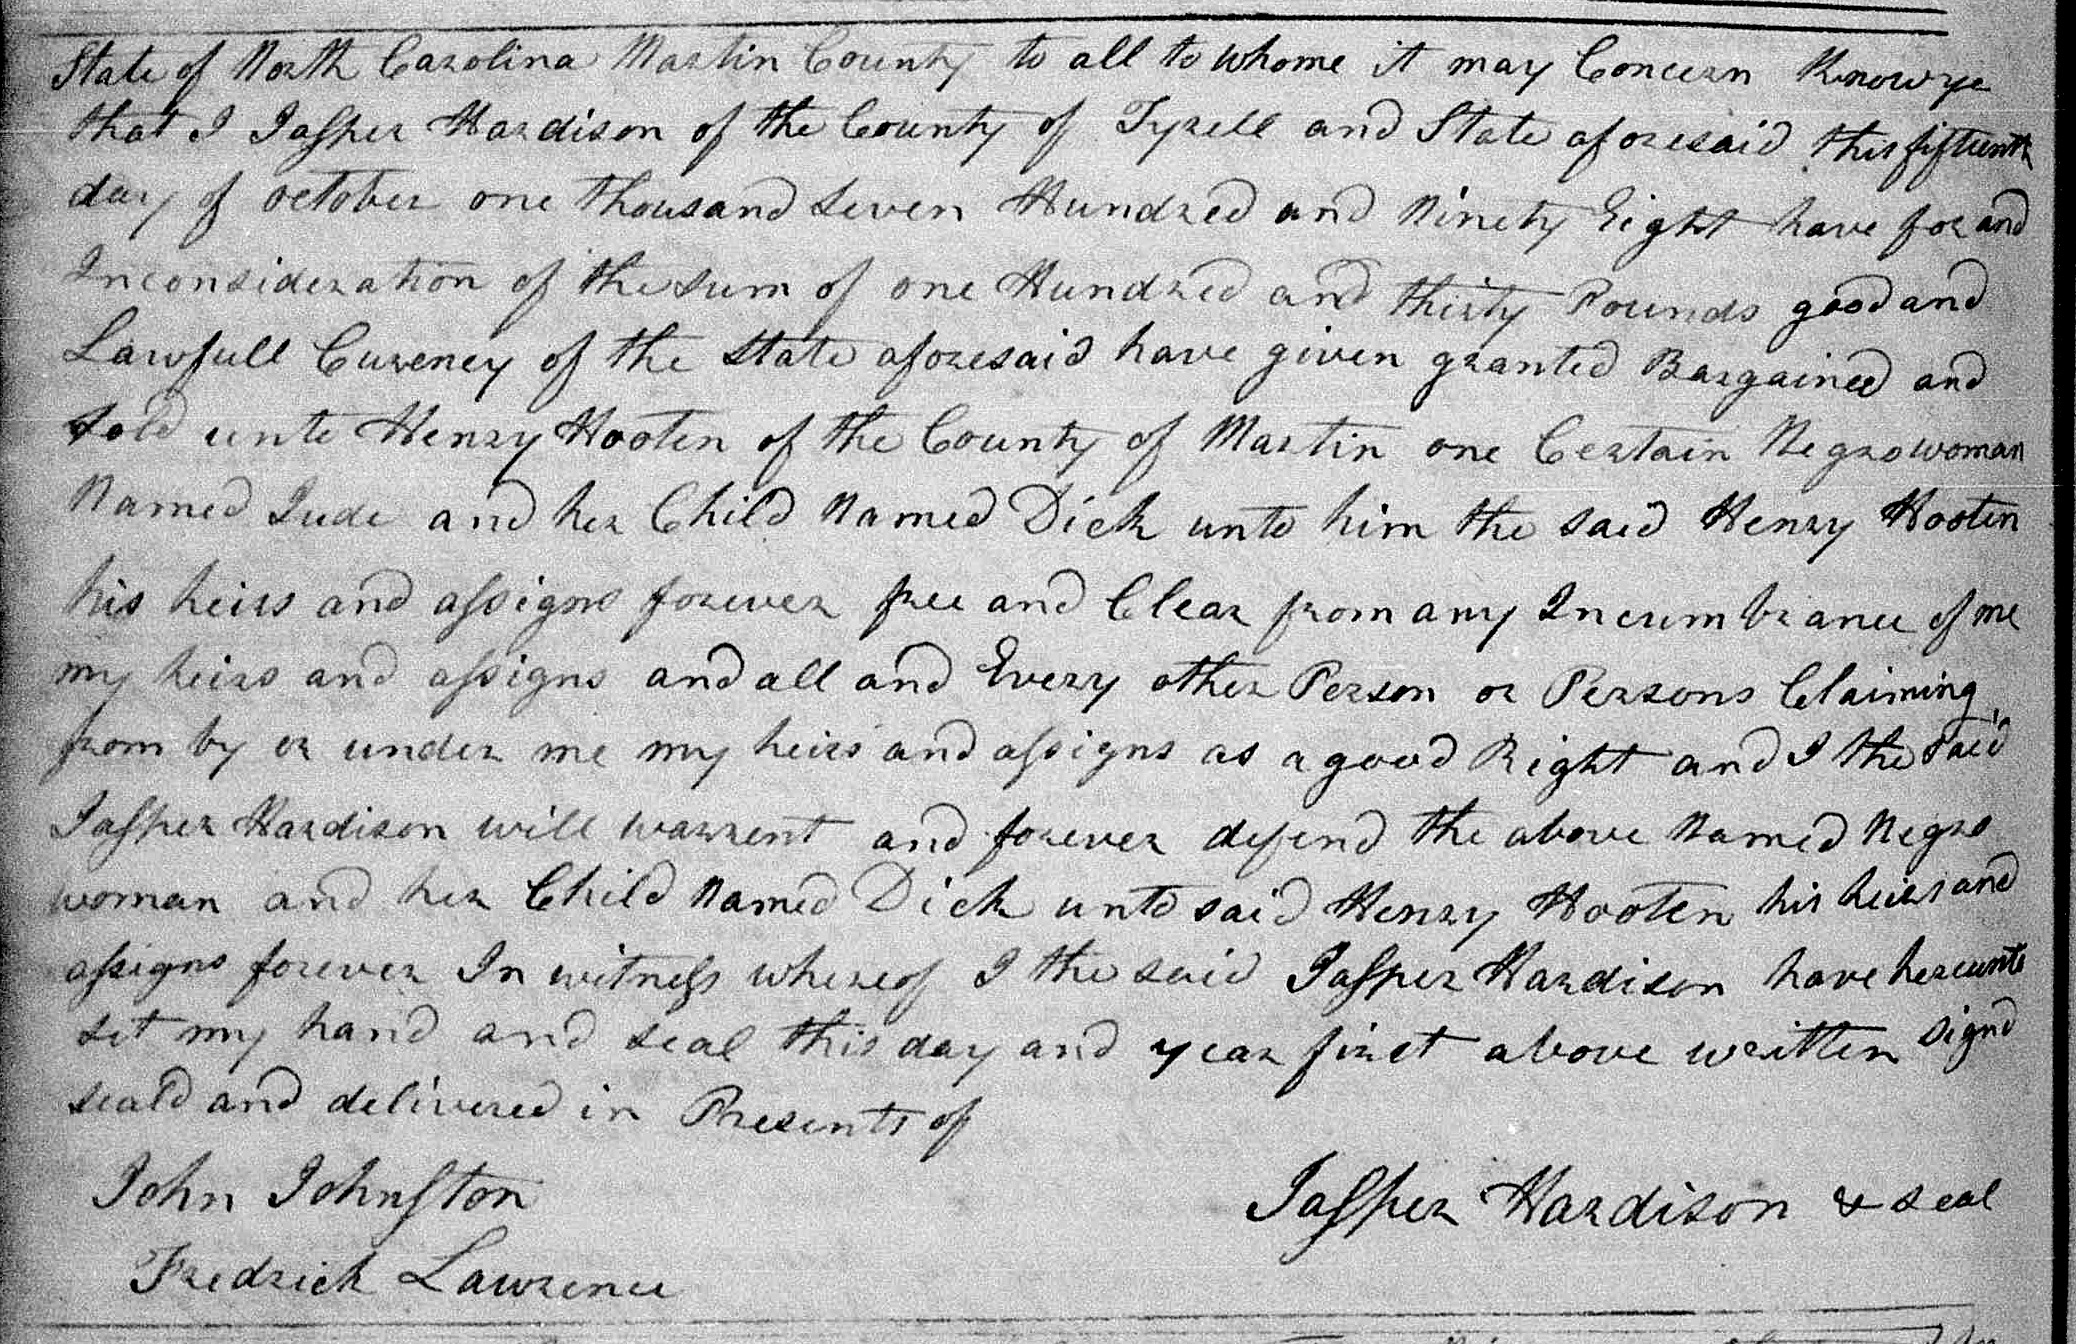 State of North Carolina Martin County to all to whome it may Concern Know ye
that I Jasper Hardison of the County of Tyrell and State aforesaid this fifteenth
day of october one thousand seven Hundred and Ninety Eight have for and
Inconsideration of the sum of one Hundred and thirty Pounds good and
Lawfull Cureney of the State aforesaid have given granted Bargained and
sold unto Henry Hooten of the County of Martin one Certain Negro woman
Named Jude and her Child Named Dick unto him the said Henry Hooten
his heirs and assigns forever free and Clear from any Incumbrance of me
my heirs and assigns and all and Every other Person or Persons Claiming
from by or under me my heirs and assigns as a good Right and I the said
Jasper Hardison will warrent and forever defend the above Named Negro
woman and her Child Named Dick unto said Henry Hooten his heirs and
assigns forever In witness whereof I the said Jasper Hardison have hereunto
set my hand and seal this day and year first above written Signd
seald and delivered in Presents of
John Johnston
Jasper Hardison & seal
Fredrick Lawrence